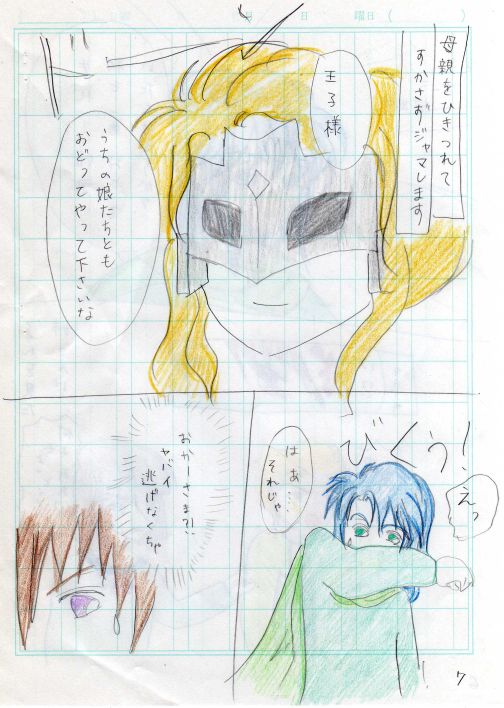 月 日 曜日 ( )
母親をひきつれて
すかさおジャマします
王子様
うちの娘たちとも
おどってやって下さいな
びくぅ!
えっ
はぁ…
それじゃ
おかーさま?!
ヤバイ
逃げなくちゃ
7